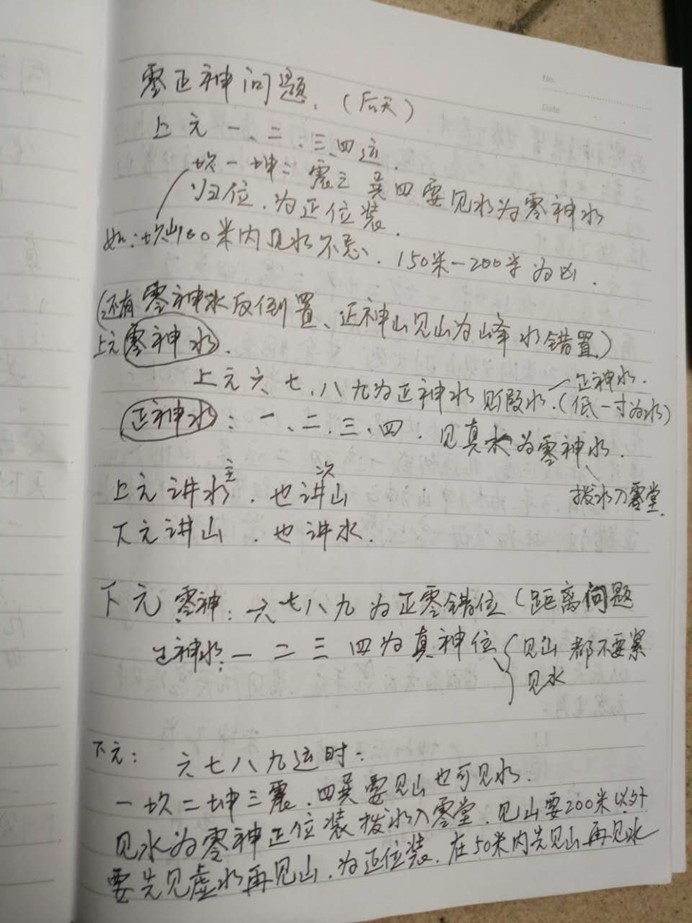 零正神问题.（后天）
上元一、二、三、四运.
坎一坤二震三巽四要见水为零神水
归位.为正位装.
如:坎山60米内见水不忌、150米-200米为凶.
(还有零神水反倒置、正神山见山为山峰水错置)
上元零神水.
上元六七、八九为正神水则假水.(低一寸为水)
正神水.
正神水:一、二、三、四.见真水为零神水.
拨水入零堂
主 次
上元讲水.也讲山
下元讲山.也讲水.
下元零神:六七八九为正零错位(距离问题
正神水:一二三四为真神位(见山都不要紧
见水
下元:六七八九运时:
一坎二坤三震.四巽要见山也可见水.
见水为零神正位装拨水入零堂.见山要200米以外
要先见虚水再见山.为正位装.在50米内先见山再见水